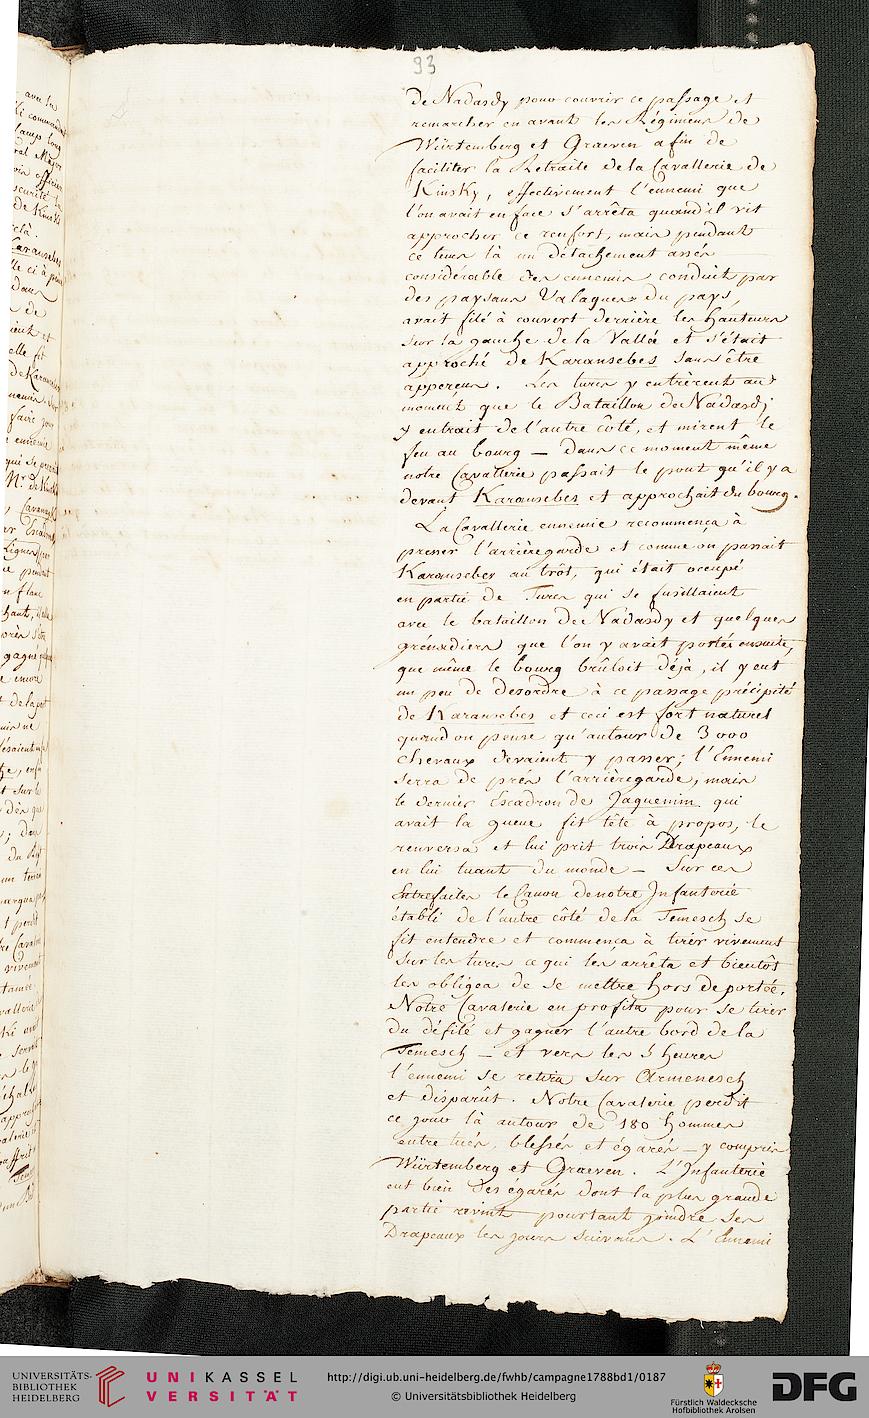 93
de Nadasdy pour couvrir ce passage et
remarcher en avant les Régimens de
Würtemberg et Graeven afin de
faciliter la Retraite de la Cavallerie de
Kinsky, effectivement l'ennemi que
l'on avait en face s'arrêta quand il vit
approcher ce renfort, mais pendant
ce tems là un détachement assés
considérable des ennemis conduit par
des paysans Valaques du pays,
avait filé à couvert derrière les hauteurs
sur la gauche de la Vallée et s'était
approché de Karansebes sans être
apperçus. Les turcs y entrèrent au
moment que le Bataillon de Nadasdj
y entrait de l'autre côté, et mirent le
feu au bourg — dans ce moment même
notre Cavallerie passait le pont qu'il y a
devant Karansebes et approchait du bourg.
La Cavallerie ennemie recommença à
presser l'arrièregarde et comme on passait
Karansebes au trôt, qui était occupé
en partie de Turcs qui se fusillaient
avec le bataillon de Nadasdy et quelques
grénadiers que l'on y avait postés ensuite,
que même le bourg brûloit déjà, il y eut
un peu de desordre à ce passage précipité
de Karansebes et ceci est fort naturel
quand on pense qu'autour de 3000
chevaux devaient y passer; l'Ennemi
serra de près l'arrièregarde, mais
le dernier Escadron de Jaquemin qui
avait la queue fit tête à propos, le
renversa et lui prit trois Drapeaux
en lui tuant du monde — Sur ces
Entrefaites le Canon de notre Infanterie
établi de l'autre côté de la Temesch se
fit entendre et commença à tirer vivement
sur les turcs ce qui les arrêta et bientôt
les obligea de se mettre hors de portée.
Notre Cavalerie en profita pour se tirer
du défilé et gagner l'autre bord de la
Temesch — et vers les 5 heures
l'ennemi se retira sur Armenesch
et disparût. Notre Cavalerie perdit
ce jour là autour de 180 hommes
entre tués, blessés et égarés — y compris
Würtemberg et Graeven. L'Infanterie
eut bien des égarés dont la plus grande
partie revint pourtant joindre ses
Drapeaux les jours suivans. L'Ennemi
UNIVERSITÄTS-
BIBLIOTHEK
HEIDELBERG
UNIKASSEL
VERSITÄT
http://digi.ub.uni-heidelberg.de/fwhb/campagne1788bd1/0187
© Universitätsbibliothek Heidelberg
Fürstlich Waldecksche
Hofbibliothek Arolsen
DFG